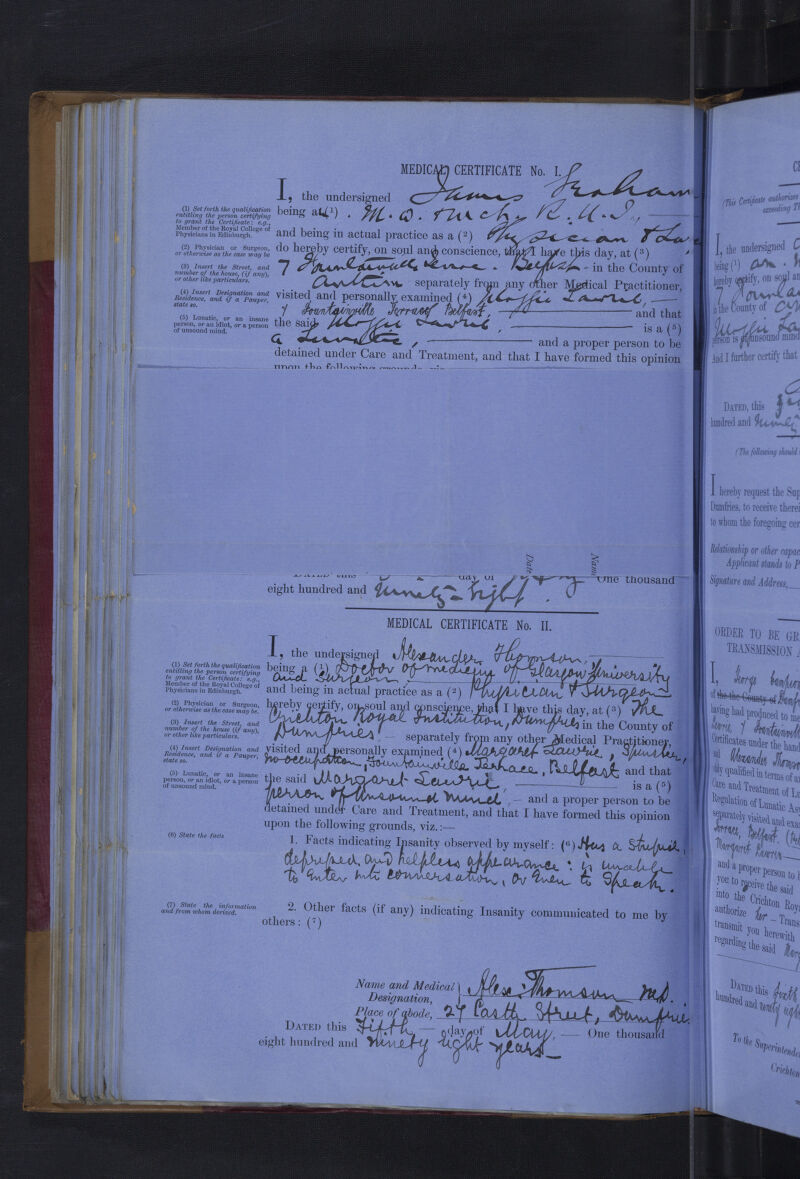 MEDICAL CERTIFICATE No. I.
I, the undersigned James Graham
(1) Set forth the qualification entitling the person certifying to grant the Certificate: e.g., Member of the Royal College of Physicians in Edinburgh.
being a (1) M.D.
and being in actual practice as a (2) Physician
(2) Physician or Surgeon, or otherwise as the case may be
do hereby certify, on soul and conscience, that I have this day, at (3)
(3) Insert the Street, and number of the house, (if any), or other like particulars.
7 Fountainville Terrace. Belfast - in the County of
Antrim separately from any other Medical Practitioner,
(4) Insert Designation and Residence, and if a Pauper, state so.
visited and personally examined (4) Lawrie,
7 Fountainville Terrace Belfast, and that
(5) Lunatic, or an insane person, or an idiot, or a person of unsound mind.
the said Lawrie, is a (5)
a Lunatic, and a proper person to be
detained under Care and Treatment, and that I have formed this opinion
upon the following grounds, viz.
Date
Name
DATED this day of One thousand
eight hundred and Ninety-Eight.
MEDICAL CERTIFICATE No. II.
I, the undersigned Alexander Thomson,
(1) Set forth the qualification entitling the person certifying to grant the Certificate: e.g., Member of the Royal College of Physicians in Edinburgh.
being a (1) Doctor of medicine of Glasgow University
and Surgeon,
and being in actual practice as a (2) Physician & Surgeon
(2) Physician or Surgeon, or otherwise as the case may be.
hereby certify, on soul and conscience, that I have this day, at (3) The
(3) Insert the Street, and number of the house, (if any), or other like particulars.
Crichton Royal Institution, Dumfries in the County of
Dumfries separately from any other Medical Practitioner,
(4) Insert Designation and Residence, and if a Pauper, state so.
visited and personally examined (4) Margaret Lawrie, Spinster,
no occupation, Fountainville Terrace, Belfast and that
(5) Lunatic, or an insane person, or an idiot, or a person of unsound mind.
the said Margaret Lawrie, is a (5)
person of unsound mind, and a proper person to be
detained under Care and Treatment, and that I have formed this opinion
upon the following grounds, viz.:—
(6) State the facts
1. Facts indicating Insanity observed by myself: (6) Has a stupid,
depressed, and helpless appearance: is unable
to enter into conversation, or even to speak.
(7) State the information and from whom derived.
2. Other facts (if any) indicating Insanity communicated to me by
others: (7)
Name and Medical Designation, Alex. Thomson M.D.
Place of abode, 27 Castle Street, Dumfries
DATED this Fifth day of May, One thousand
eight hundred and ninety eight years
(This Certificate authorises
I, the undersigned
being (1)
hereby certify, on soul an
in the County of
person is of unsound mind
And I further certify that
DATED, this
hundred and Ninety
(The following should
I hereby request the Sup
Dumfries, to receive therei
to whom the foregoing cer
Relationship or other capac
Applicant stands to P
Signature and Address,
ORDER TO BE GR
TRANSMISSION
I, George
of the County of
having had produced to me
Lawrie, 7 Fountainvil
Certificates under the hand
Alexander Thomso
duly qualified in terms of a
Care and Treatment of Lu
Regulation of Lunatic As
separately visited and exa
Terrace, Belfast.
Margaret Lawrie
and a proper person to
you to receive the said
into the Crichton Roy
authorize her Trans
transmit you herewith
regarding the said Mar
DATED this
hundred and ninety
To the Superintende
Crichton